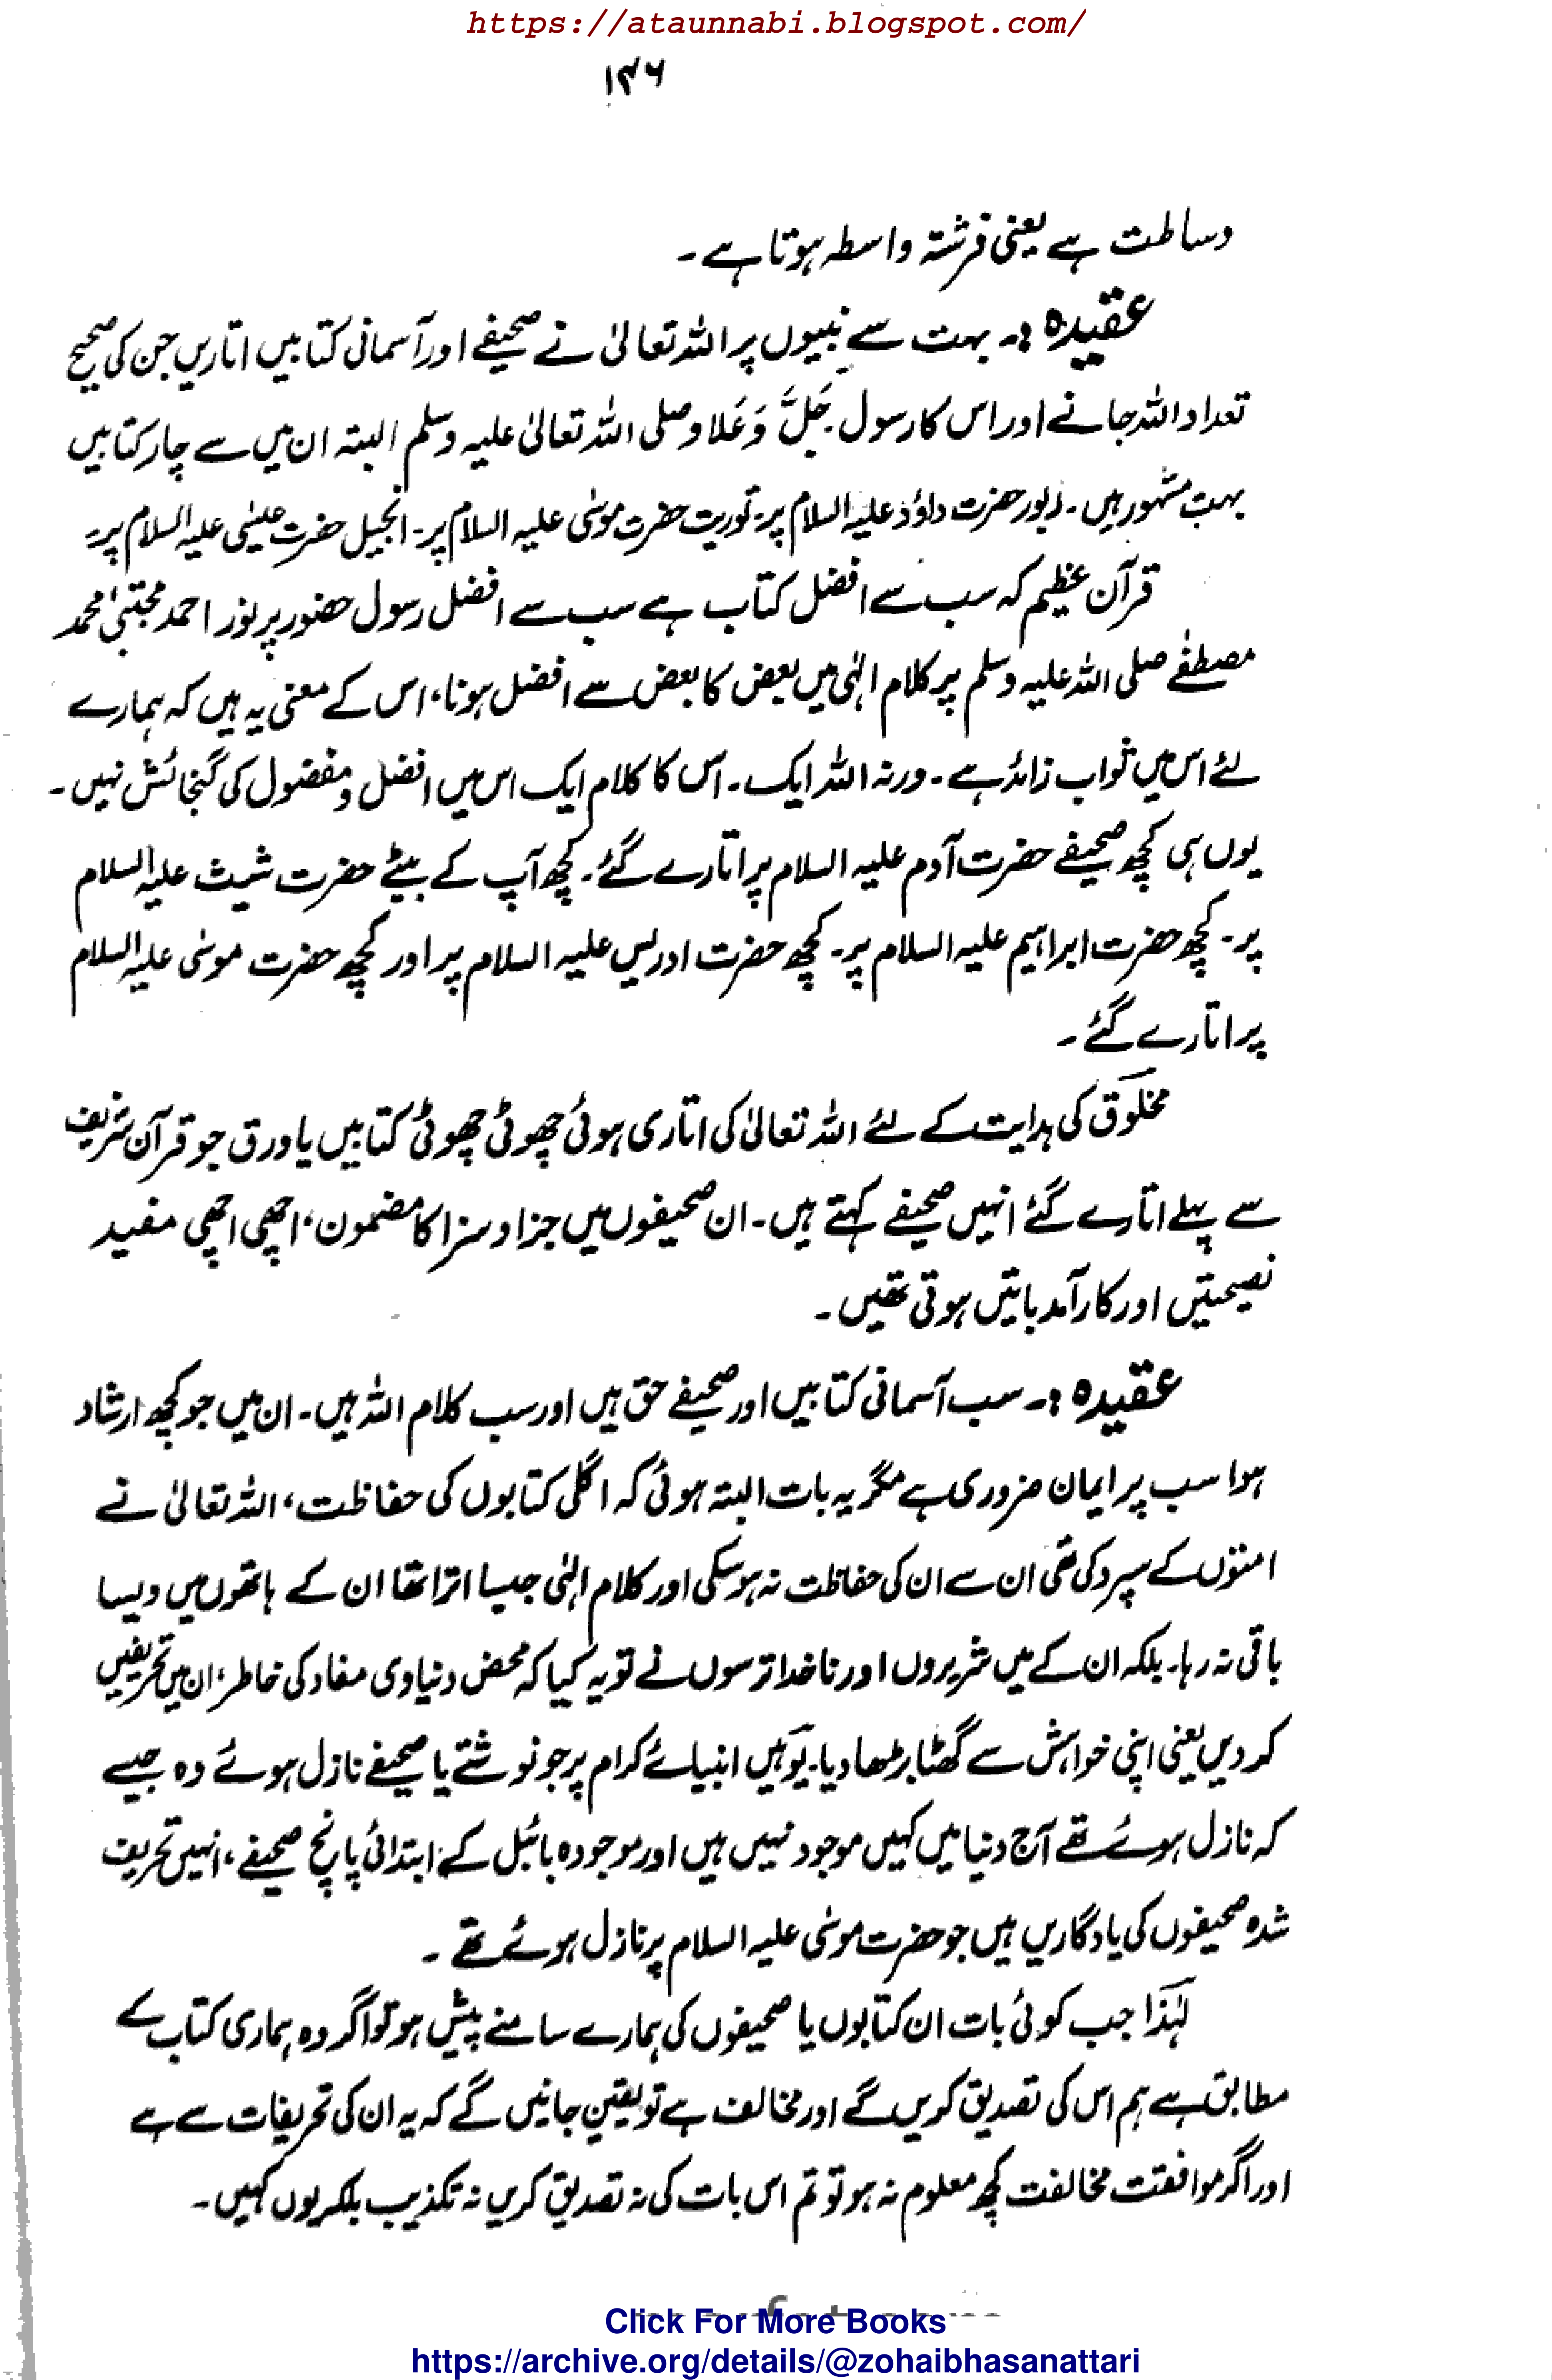 https://ataunnabi.blogspot.com/
۱۴۶
وساطت ہے یعنی فرشتہ واسطہ ہوتا ہے ۔
عقیدہ :۔ بہت سے نبیوں پر اللہ تعالیٰ نے صحیفے اور آسمانی کتابیں اتاریں جن کی صحیح
تعداد اللہ جانے اور اس کا رسول ۔ جَلَّ وَعَلا و صلی اللہ تعالیٰ علیہ وسلم البتہ ان میں سے چار کتابیں
بہت مشہور ہیں ۔ زبور حضرت داؤد علیہ السلام پر ۔ توریت حضرت موسٰی علیہ السلام پر ۔ انجیل حضرت عیسٰی علیہ السلام پر ۔
قرآن عظیم کہ سب سے افضل کتاب ہے سب سے افضل رسول حضور پر نور احمد مجتبیٰ محمد
مصطفٰے صلی اللہ علیہ وسلم پر کلام الہٰی میں بعض کا بعض سے افضل ہونا، اس کے معنی یہ ہیں کہ ہمارے
لئے اس میں ثواب زائد ہے ۔ ورنہ اللہ ایک ۔ اس کا کلام ایک اس میں افضل و مفضول کی گنجائش نہیں ۔
یوں ہی کچھ صحیفے حضرت آدم علیہ السلام پر اتارے گئے ۔ کچھ آپ کے بیٹے حضرت شیث علیہ السلام
پر ۔ کچھ حضرت ابراہیم علیہ السلام پر ۔ کچھ حضرت ادریس علیہ السلام پر اور کچھ حضرت موسٰی علیہ السلام
پر اتارے گئے ۔
مخلوق کی ہدایت کے لئے اللہ تعالیٰ کی اتاری ہوئی چھوٹی چھوٹی کتابیں یا ورق جو قرآن شریف
سے پہلے اتارے گئے انہیں صحیفے کہتے ہیں ۔ ان صحیفوں میں جزا و سزا کا مضمون، اچھی اچھی مفید
نصیحتیں اور کارآمد باتیں ہوتی تھیں ۔
عقیدہ :۔ سب آسمانی کتابیں اور صحیفے حق ہیں اور سب کلام اللہ ہیں ۔ ان میں جو کچھ ارشاد
ہوا سب پر ایمان ضروری ہے مگر یہ بات البتہ ہوئی کہ اگلی کتابوں کی حفاظت، اللہ تعالیٰ نے
امتوں کے سپرد کی تھی ان سے ان کی حفاظت نہ ہو سکی اور کلام الہٰی جیسا اترا تھا ان کے ہاتھوں میں ویسا
باقی نہ رہا ۔ بلکہ ان کے میں شریروں اور ناخدا ترسوں نے تو یہ کیا کہ محض دنیاوی مفاد کی خاطر، ان میں تحریفیں
کر دیں یعنی اپنی خواہش سے گھٹا بڑھا دیا ۔ یوہیں انبیائے کرام پر جو نوشتے یا صحیفے نازل ہوئے وہ جیسے
کہ نازل ہوئے تھے آج دنیا میں کہیں موجود نہیں ہیں اور موجودہ بائبل کے ابتدائی پانچ صحیفے، انہیں تحریف
شدہ صحیفوں کی یادگاریں ہیں جو حضرت موسٰی علیہ السلام پر نازل ہوئے تھے ۔
لہٰذا جب کوئی بات ان کتابوں یا صحیفوں کی ہمارے سامنے پیش ہو تو اگر وہ ہماری کتاب کے
مطابق ہے ہم اس کی تصدیق کریں گے اور مخالف ہے تو یقین جانیں گے کہ یہ ان کی تحریفات سے ہے
اور اگر موافقت مخالفت کچھ معلوم نہ ہو تو تم اس بات کی نہ تصدیق کریں نہ تکذیب بلکہ یوں کہیں ۔
Click For More Books
https://archive.org/details/@zohaibhasanattari